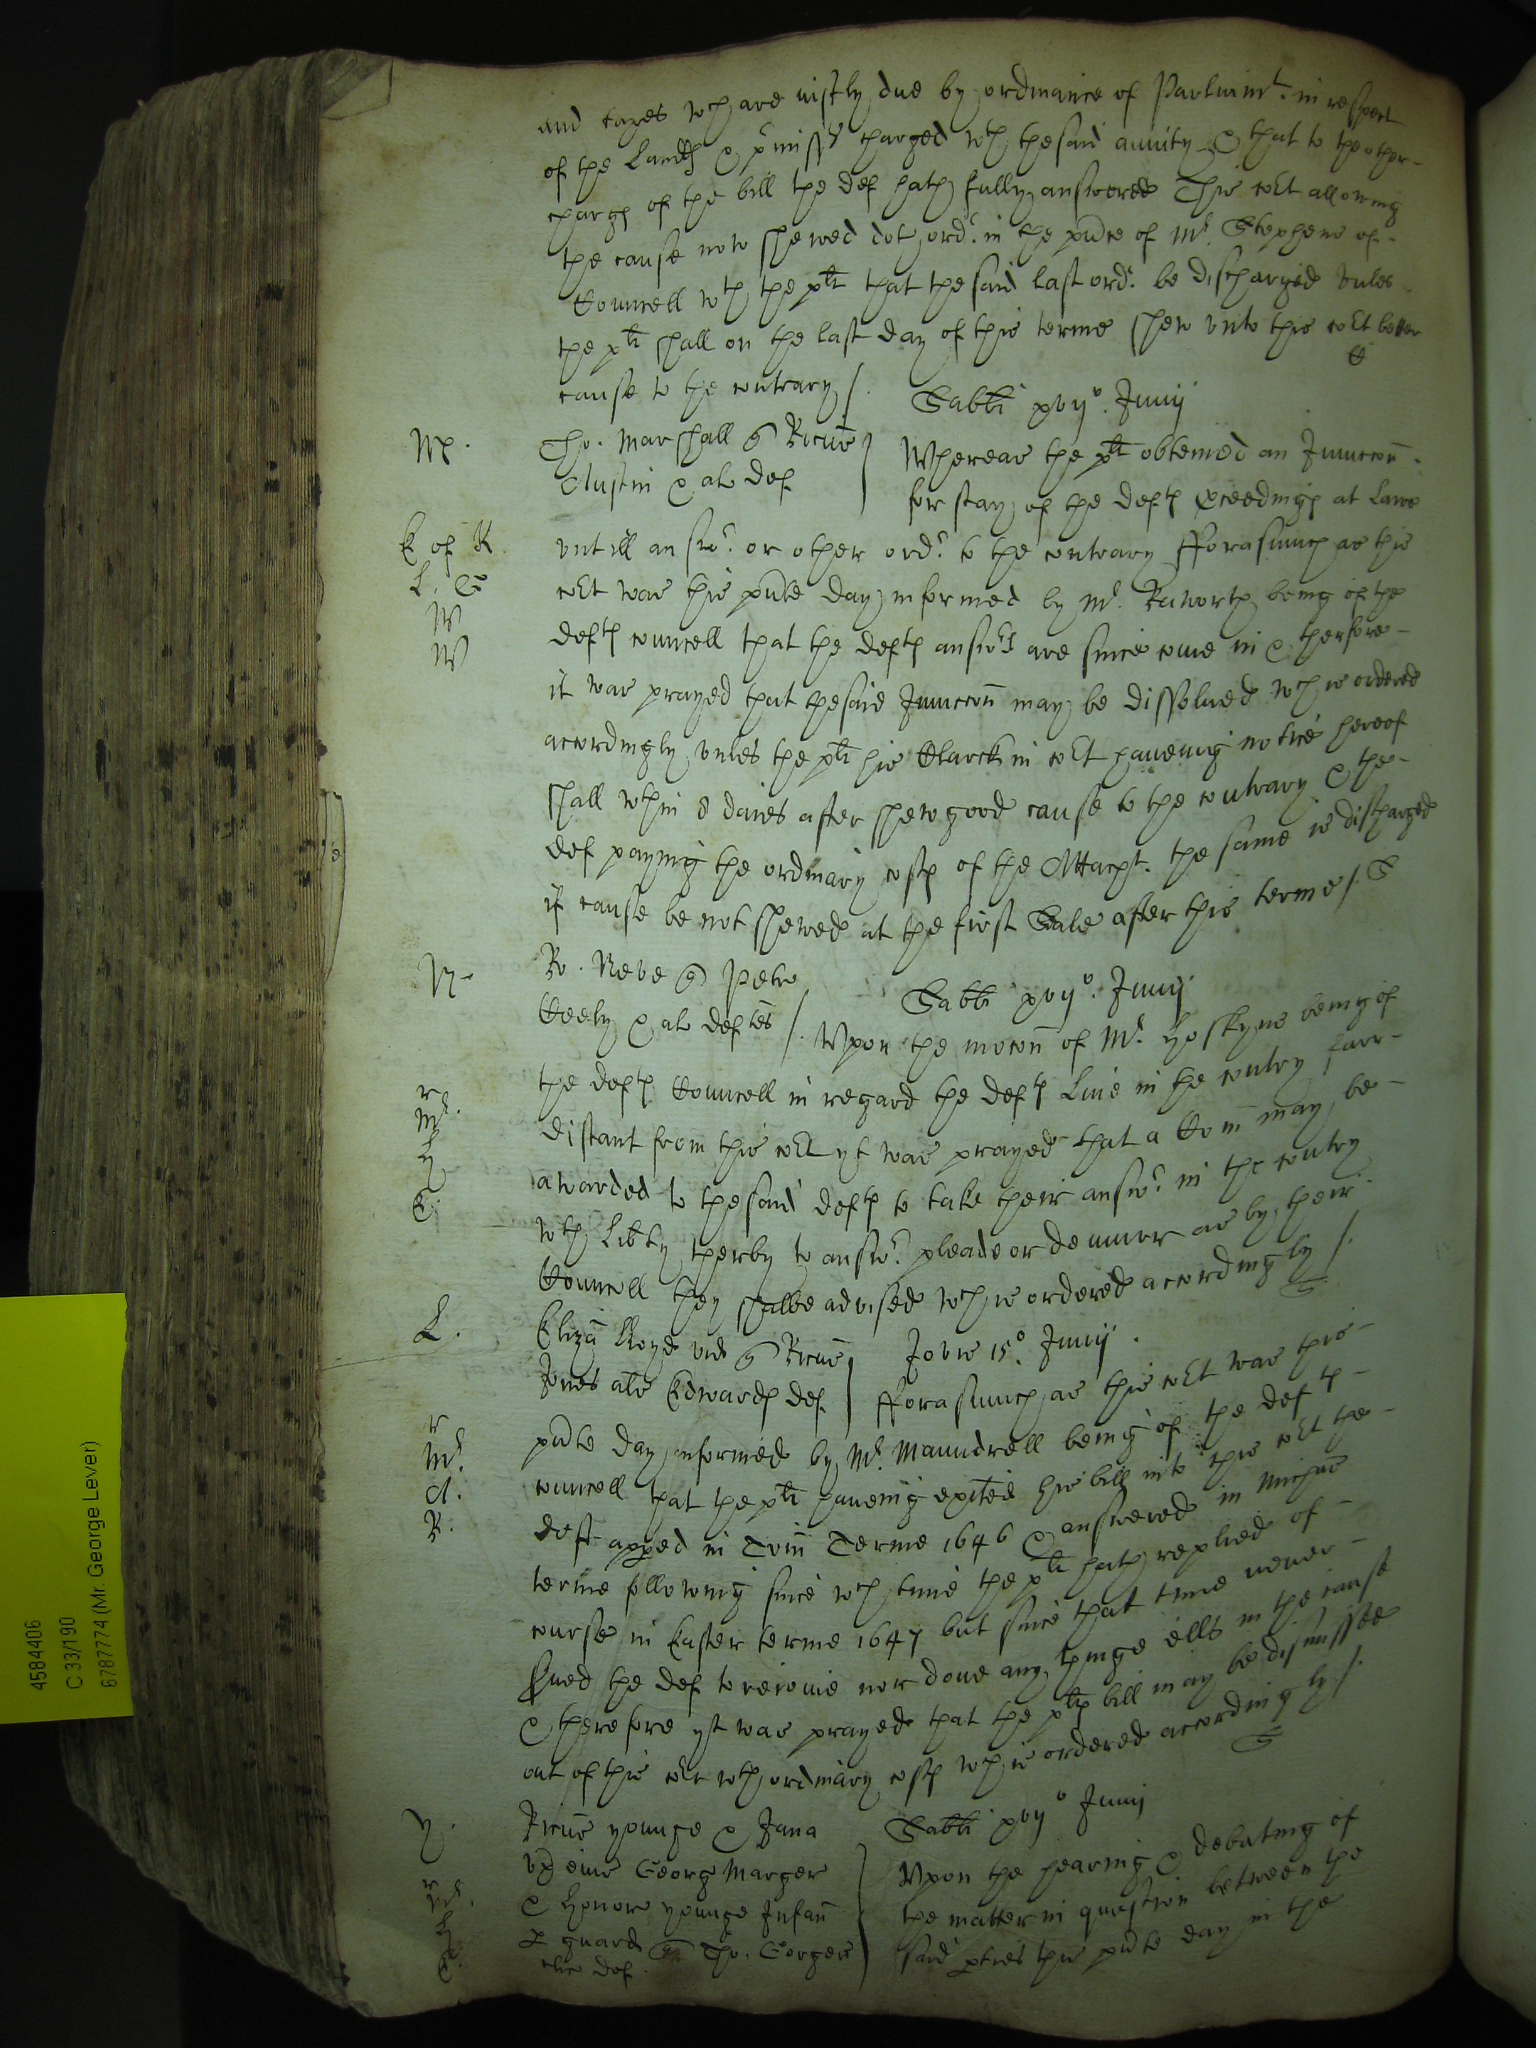 and taxes wch are iustly due by ordinance of Parliamt. in respect
of the Lands & pmisses charged wth the said anuity & that to the other
charge of the bill the def hath fully answered This Court allowing
the cause now shewed doth ord. in the pnce of Mr. Stephens of
Councell wth the plt that the said last ordr. be discharged vnles
the plt shall on the last day of this terme shew vnto this Court better
cause to the contrary /.
Sabbti xvijo. Junij
M.
Tho. Marshall Ricus
Austin & als def
Whereas the plt obteined an Iniunccon
for stay of the defts pceedings at Lawe
E of K
vntill answr. or other ordr. to the contrary fforasmuch as this
L. G
Court was this pnte day informed by Mr. Raworth being of the
W
defts councell that the defts answrs are since come in & therfore
W
it was prayed that the said Iniunccon may be dissolued wch is ordered
accordingly vnles the plt his Clarck in Court haueing notice hereof
shall wthin 8 daies after shew good cause to the contrary & the
def paying the ordinary costs of the Attachmt. the same is discharged
if cause be not shewed at the first Seale after this terme /.
N
Ro. Neve Petr
Sabbti xvijo. Junij
Keely & als deftes /.
Vpon the mocon of Mr. Hoskyns being of
the defts Councell in regard the defts Liue in the contry farr
r
Mr.
distant from this Court yt was prayed that a Com may be
H
awarded to the said defts to take their answr. in the contry
C.
wth Libty therby to answr. pleade or demurr as by their
Councell they shalbe advised wch is ordered accordingly /.
L.
Eliza Lloyd vid Ricus
Jovis 15o. Junij.
Jones als Edwards def.
fforasmuch as this Court was this
r
pnte day informed by Mr. Maundrell being of the defts
Mr.
councell that the plt haueing exited his bill into this Court the
A.
deft apped in Trin Terme 1646 & answered in Michas
R.
terme following since wch time the plt hath replied of
course in Easter terme 1647 but since that time neuer
serued the def to reioine nor done any thinge ells in the cause
& therefore yt was prayed that the plts bill may be dismissed
out of this Court wth ordinary costs wch is ordered accordingly /.
Y.
Ricus Younge & Jana
Sabbti xvijo Junij
vx eius George Marger
Vpon the hearing & debating of
r
Mr.
& Honor Younge Infan
the matter in question between the
H
p guard Tho. Gorges
said pties this pnte day in the
C
als def.
4584406
C 33/190
6787774 (Mr. George Lever)